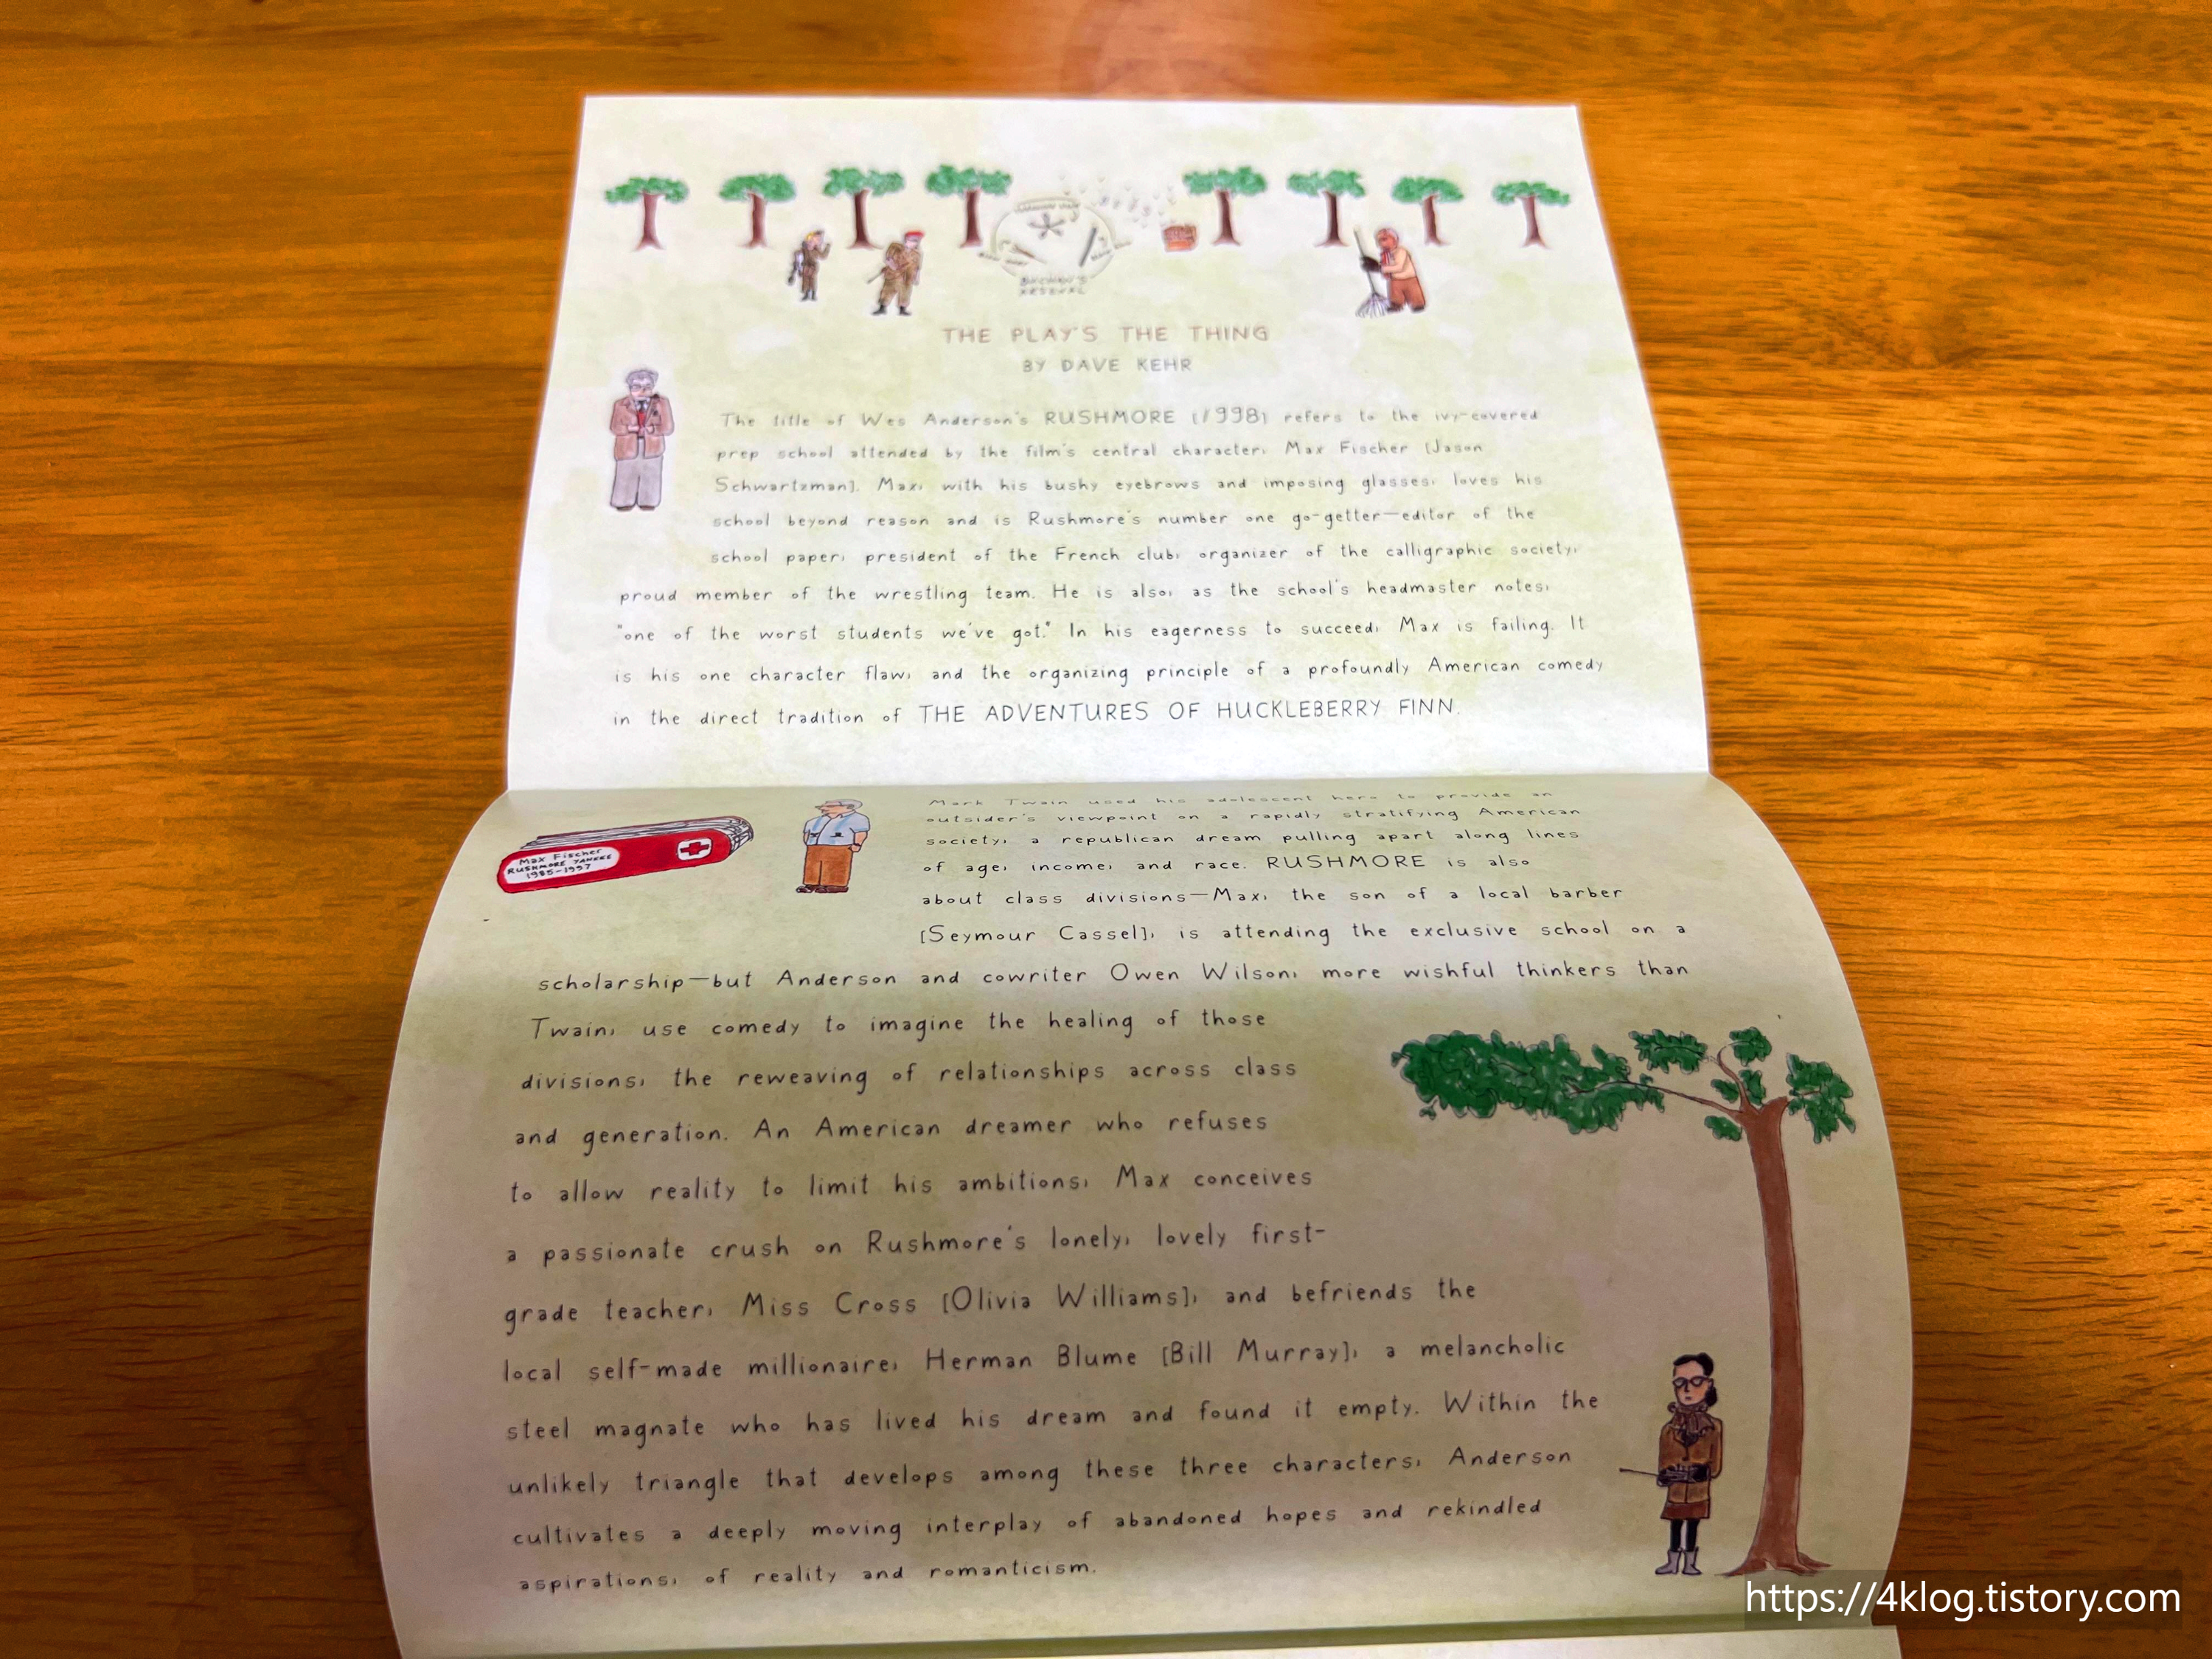 THE PLAY'S THE THING
BY DAVE KEHR
The title of Wes Anderson's RUSHMORE [1998] refers to the ivy-covered
prep school attended by the film's central character, Max Fischer [Jason
Schwartzman]. Max, with his bushy eyebrows and imposing glasses, loves his
school beyond reason and is Rushmore's number one go-getter—editor of the
school paper, president of the French club, organizer of the calligraphic society,
proud member of the wrestling team. He is also, as the school's headmaster notes,
"one of the worst students we've got." In his eagerness to succeed, Max is failing. It
is his one character flaw, and the organizing principle of a profoundly American comedy
in the direct tradition of THE ADVENTURES OF HUCKLEBERRY FINN.
Max Fischer
RUSHMORE YANKEE
1985-1997
Mark Twain used his adolescent hero to provide an
outsider's viewpoint on a rapidly stratifying American
society, a republican dream pulling apart along lines
of age, income, and race. RUSHMORE is also
about class divisions—Max, the son of a local barber
[Seymour Cassel], is attending the exclusive school on a
scholarship—but Anderson and cowriter Owen Wilson, more wishful thinkers than
Twain, use comedy to imagine the healing of those
divisions, the reweaving of relationships across class
and generation. An American dreamer who refuses
to allow reality to limit his ambitions, Max conceives
a passionate crush on Rushmore's lonely, lovely first-
grade teacher, Miss Cross [Olivia Williams], and befriends the
local self-made millionaire, Herman Blume [Bill Murray], a melancholic
steel magnate who has lived his dream and found it empty. Within the
unlikely triangle that develops among these three characters, Anderson
cultivates a deeply moving interplay of abandoned hopes and rekindled
aspirations, of reality and romanticism.
https://4klog.tistory.com